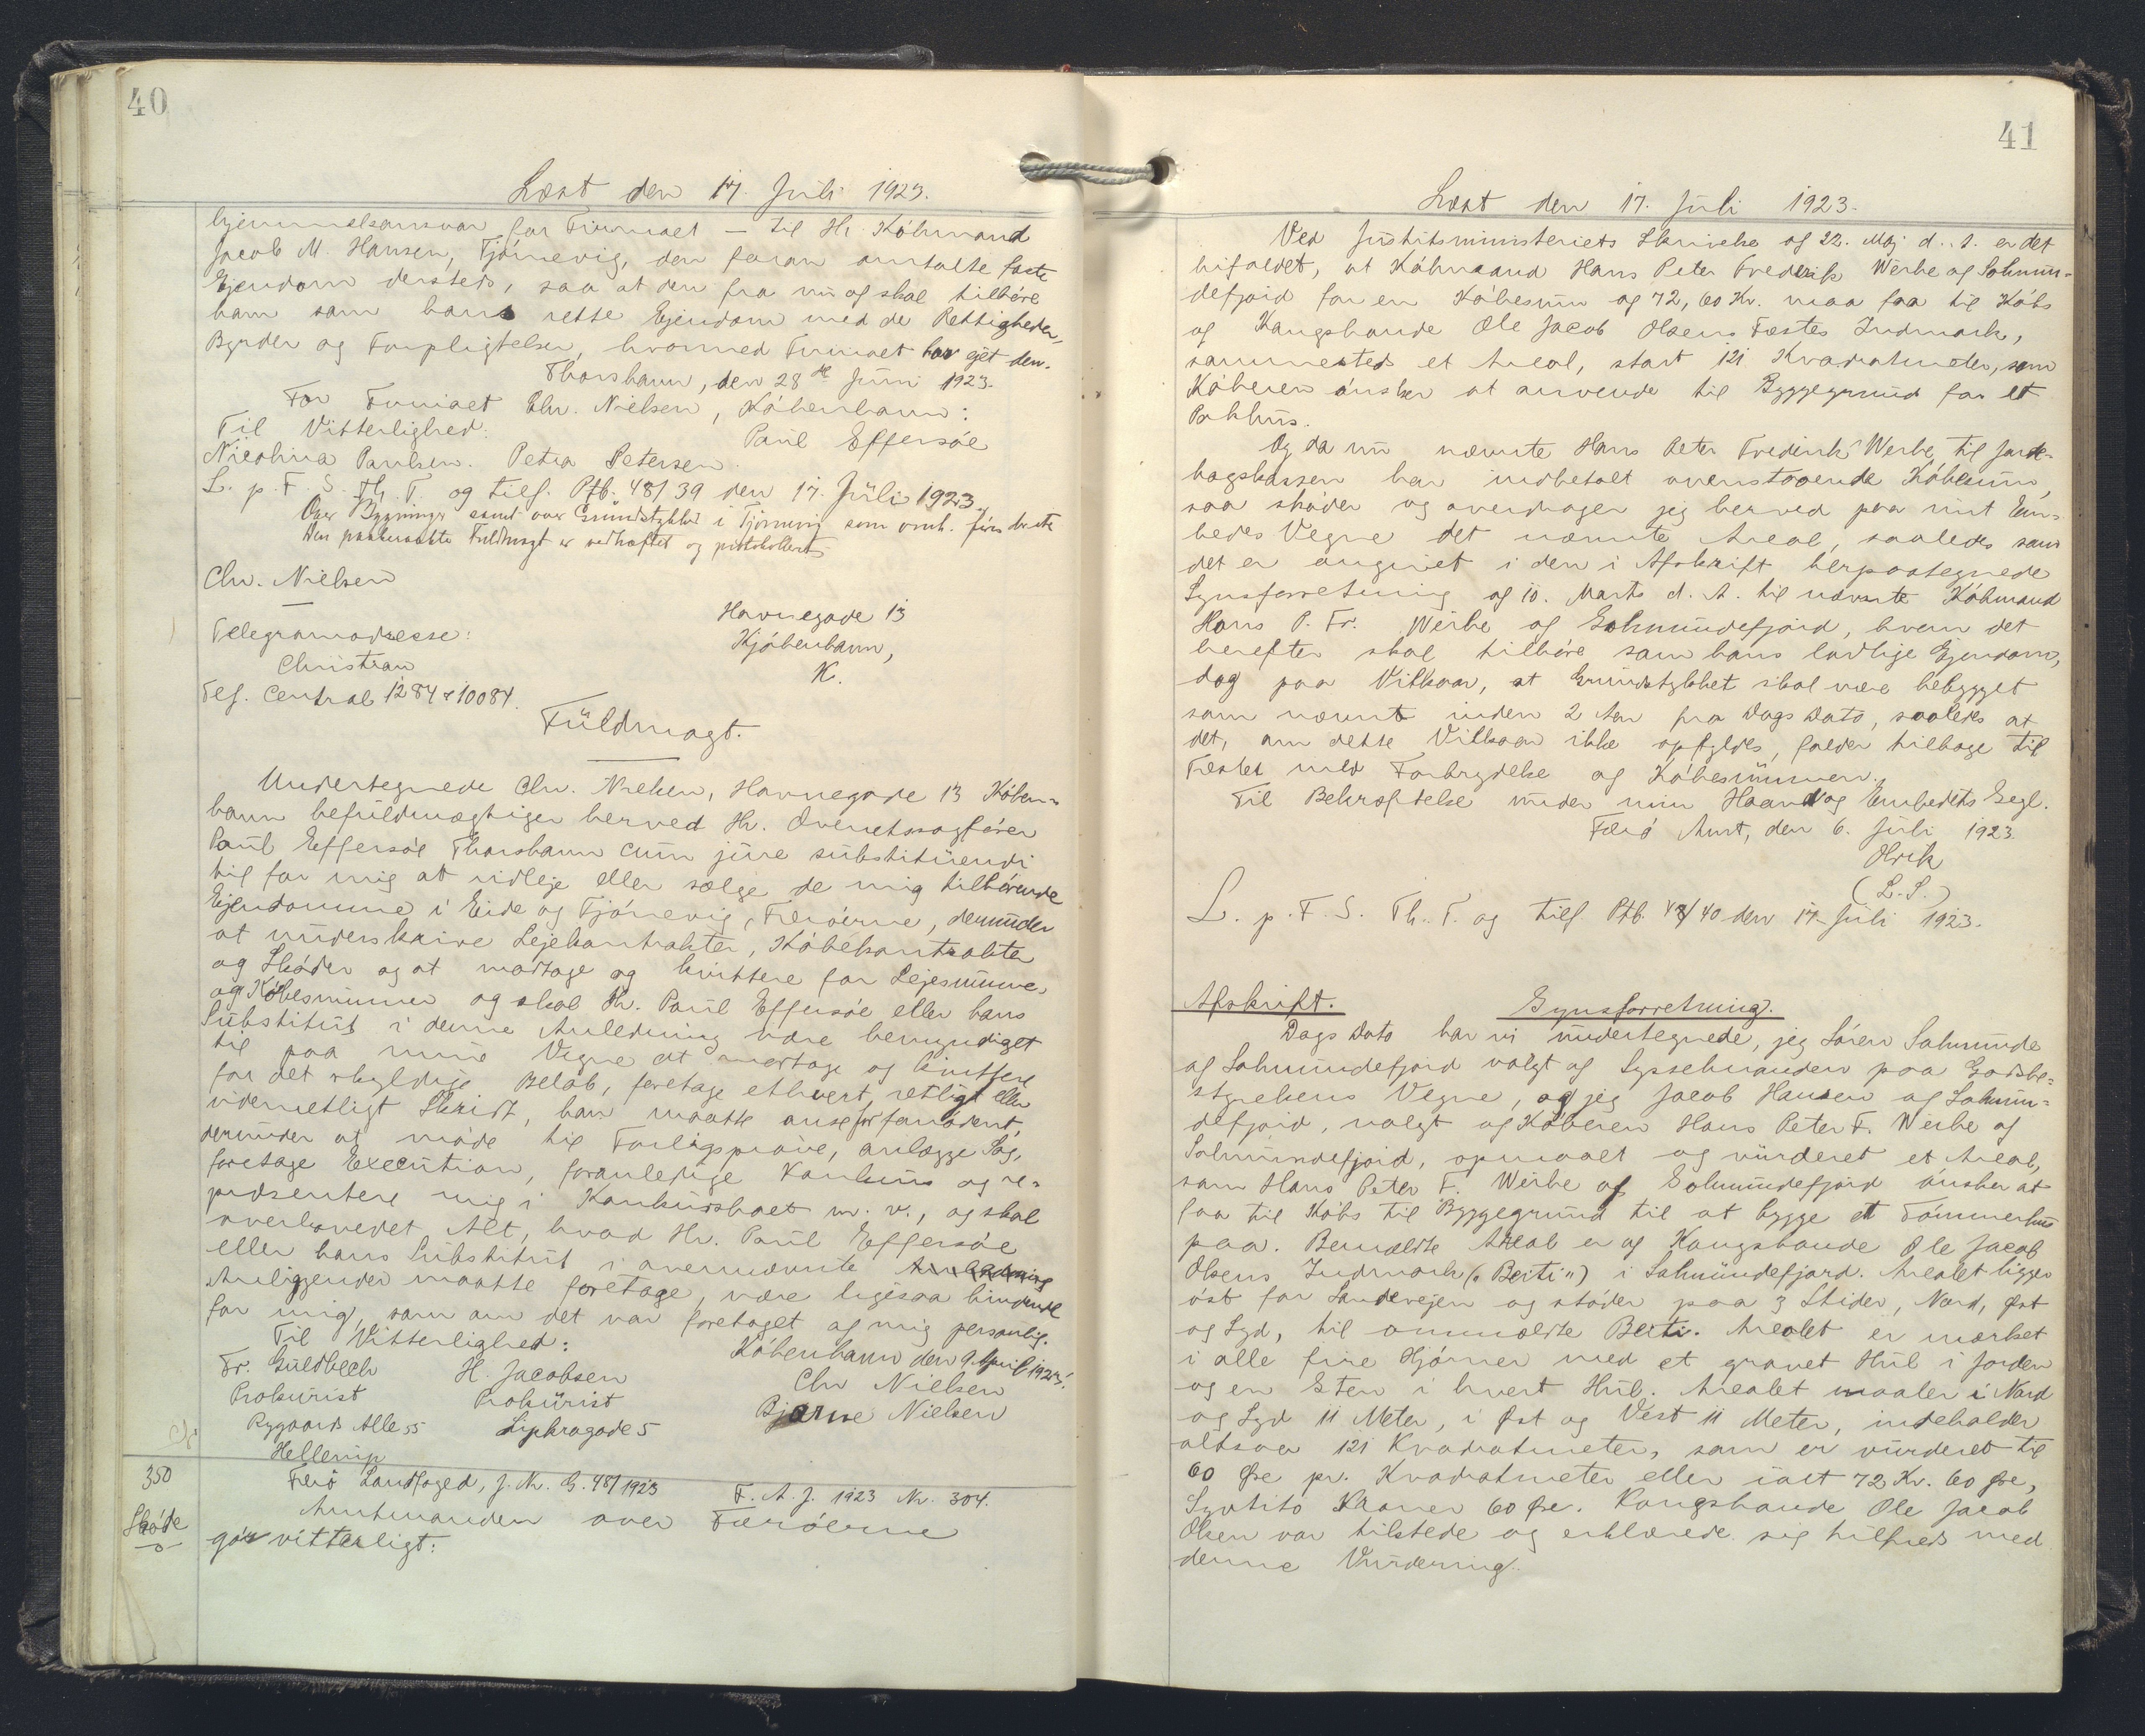 40
Læst den 17. Juli 1923.
hjemmelsansvar for Firmaet — til Hr. Köbmand
Jacob M. Hansen, Tjörnevig, den foran omtalte faste
Ejendom dersteds, saa at den fra nu af skal tilhöre
ham som hans rette Ejendom med de Rettigheder,
Byrder og Forpligtelser, hvormed Firmaet har ejet den.
Thorshavn, den 28 Juni 1923.
For Firmaet Chr. Nielsen, Köbenhavn:
Til Vitterlighed: Paul Effersöe
Nicolina Paulsen. Petra Petersen.
L. p. F. S. Th. T. og tilf. Ptb. 48/39 den 17. Juli 1923.
Over Bygninger samt over Grundstykket i Tjörnevig som omh. förs
Den paaberaabte Fuldmagt er vedhæftet og protokolleret
Chr. Nielsen
Havnegade 13
Telegramadresse: Kjöbenhavn,
Christian K.
Telf. Central 1284 & 10084.
Fuldmagt.
Undertegnede Chr. Nielsen, Havnegade 13 Köben-
havn befuldmægtiger herved Hr. Overretssagförer
Paul Effersöe Thorshavn cum jure substituendi
til for mig at udleje eller sælge de mig tilhörende
Ejendomme i Eide og Tjörnevig, Færöerne, derunder
at underskrive Lejekontrakter, Köbekontrakter
og Sköder og at modtage og kvittere for Lejesumme,
og Köbesummer og skal Hr. Paul Effersöe eller hans
Substitut i denne Anledning være bemyndiget
til paa mine Vegne at modtage og kvittere
for det skyldige Belöb, foretage ethvert, retligt eller
udenretligt Skridt, han maatte anse for fornödent,
derunder at möde til Forligspröve, anlægge Sag,
foretage Execution, foranledige Konkurs og re-
præsentere mig i Konkursboet m. v., og skal
overhovedet Alt, hvad Hr. Paul Effersöe
eller hans Substitut i overnævnte Anledning
Anliggender maatte foretage, være ligesaa bindende
for mig, som om det var foretaget af mig personlig.
Til Vitterlighed: Köbenhavn den 9. April 1923.
Fr. Guldbech H. Jacobsen Chr Nielsen
Prokurist Prokurist Bjarne Nielsen
Rygaards Alle 55 Lipkragade 5
Hellerup
350 Færö Landfoged, J. Nr. G. 48/1923 F. A. J. 1923 Nr. 304.
Sköde Amtmanden over Færöerne
gör vitterligt:
41
Læst den 17. Juli 1923.
Ved Justitsministeriets Skrivelse af 22. Maj d. A. er det
bifaldet, at Köbmand Hans Peter Frederik Weihe af Solmun-
defjord for en Köbesum af 72,60 Kr. maa faa til Köbs
af Kongsbonde Ole Jacob Olsens Fæstes Indmark,
sammesteds et Areal, stort 121 Kvadratmeter, som
Köberen önsker at anvende til Byggegrund for et
Pakhus.
Og da nu nævnte Hans Peter Frederik Weihe til Jorde-
bogskassen har indbetalt ovenstaaende Köbesum,
saa sköder og overdrager jeg herved paa mit Em-
bedes Vegne det nævnte Areal, saaledes som
det er angivet i den i Afskrift herpaategnede
Synsforretning af 10. Marts d. A. til nævnte Köbmand
Hans P. Fr. Weihe af Solmundefjord, hvem det
herefter skal tilhöre som hans lovlige Ejendom,
dog paa Vilkaar, at Grundstykket skal være bebygget
som nævnt inden 2 Aar fra Dags Dato, saaledes at
det, om dette Vilkaar ikke opfyldes, falder tilbage til
Fæstet med Forbrydelse af Köbesummen.
Til Bekræftelse under min Haand og Embedets Segl.
Færö Amt, den 6. Juli 1923.
(L. S.)
L. p. F. S. Th. T. og tilf. Ptb. 48/40 den 17. Juli 1923.
Afskrift. Synsforretning.
Dags Dato har vi undertegnede, jeg Sören Solmunde
af Solmundefjord valgt af Sysselmanden paa Godsbe-
styrelsens Vegne, og jeg Jacob Hansen af Solmun-
defjord, valgt af Köberen Hans Peter F. Weihe af
Solmundefjord, opmaalt og vurderet et Areal,
som Hans Peter F. Weihe af Solmundefjord önsker at
faa til Köbs til Byggegrund til at bygge et Tömmerhus
paa. Bemeldte Areal er af Kongsbonde Ole Jacob
Olsens Indmark („Beiti") i Solmundefjord. Arealet ligger
öst for Landevejen og stöder paa 3 Skider, Nord, Öst
og Syd, til ommeldte Beiti. Arealet er mærket
i alle fire Hjörner med et gravet Hul i Jorden
og en Sten i hvert Hul. Arealet maaler i Nord
og Syd 11 Meter, i Öst og Vest 11 Meter, indeholder
altsaa 121 Kvadratmeter, som er vurderet til
60 Öre pr. Kvadratmeter eller ialt 72 Kr. 60 Öre,
Syvtito Kroner 60 Öre. Kongsbonde Ole Jacob
Olsen var tilstede og erklærede sig tilfreds med
denne Vurdering.